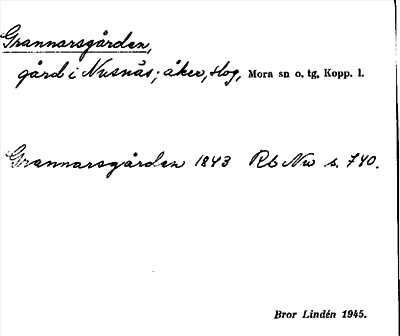 Grannarsgården,
gård i Nusnäs; åker, skog, Mora sn o. tg, Kopp. l.
Grannarsgården 1843 Rb Nu s. 740.
Bror Lindén 1945.